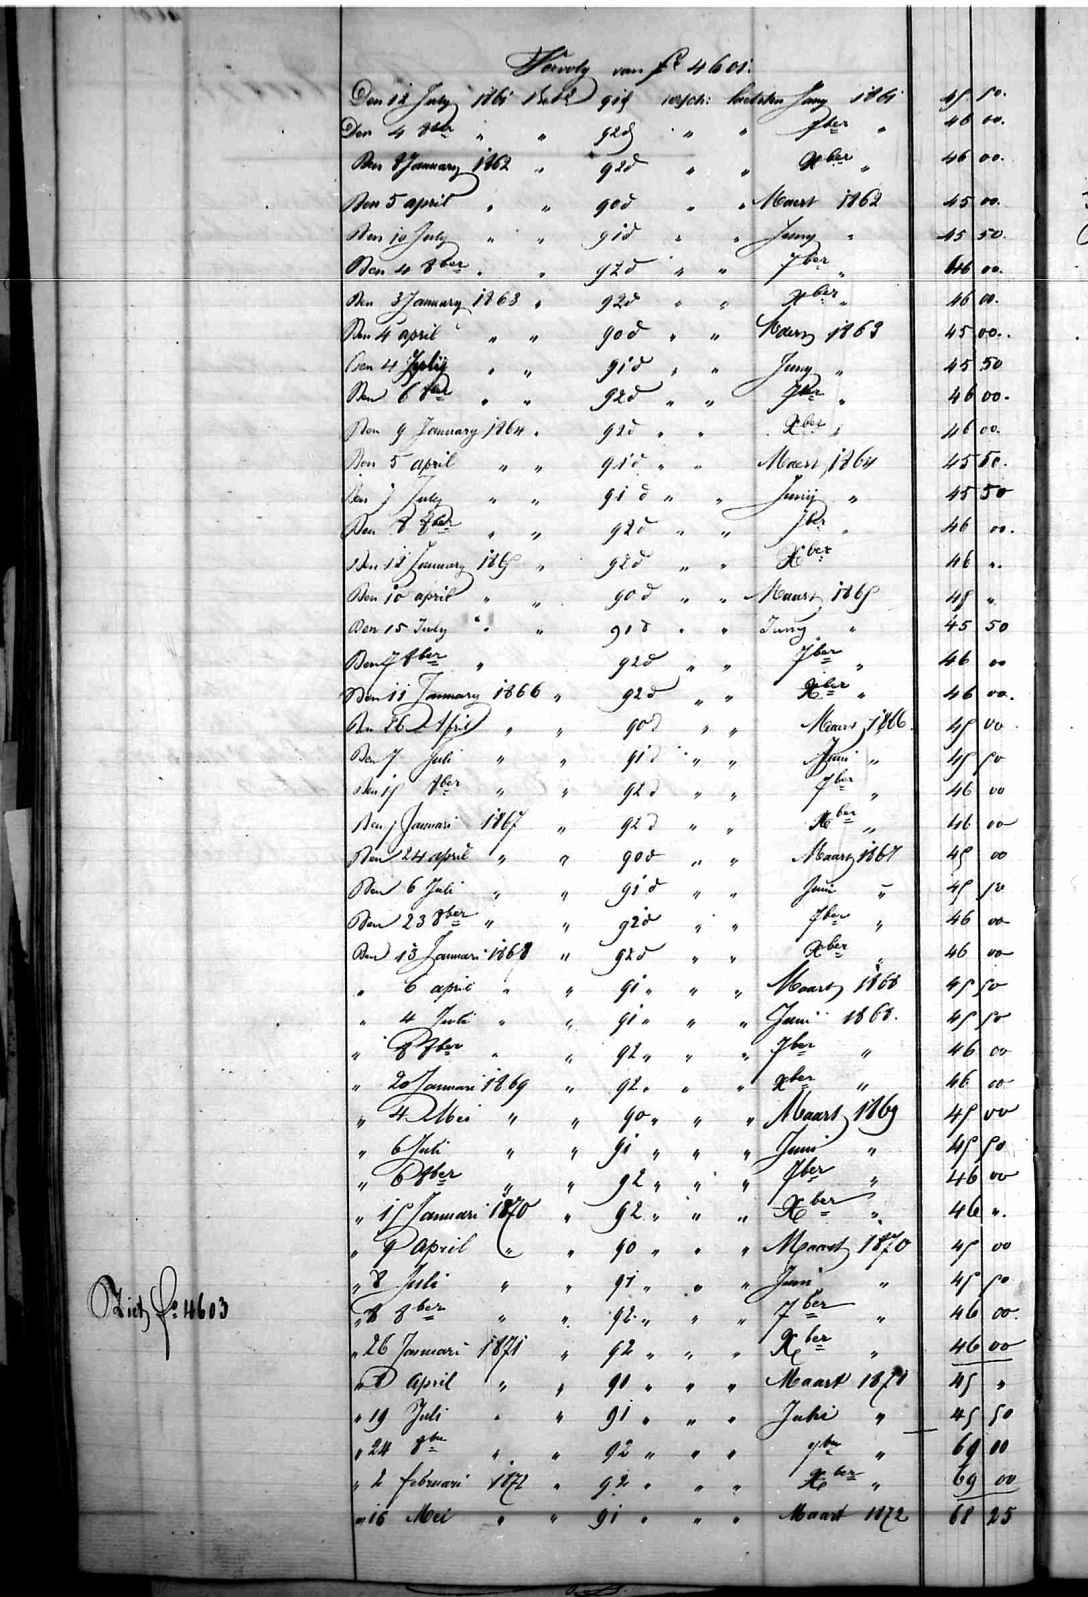 Vervolg van fo 4601.
Den 12 July 1861 Bet. 91d versch: laatsten Juny 1861 45 50.
Den 4 8ber " " 92d " " 7ber " 46 00.
Den 8 January 1862 " 92d " " Xber " 46 00.
Den 5 april " " 90d " " Maert 1862 45 00.
Den 10 July " " 91d " " Juny " 45 50.
Den 4 8ber " " 92d " " 7ber " 46 00.
Den 3 January 1863 " 92d " " Xber " 46 00.
Den 4 april " " 90d " " Maert 1863 45 00.
Den 4 July " " 91d " " Juny " 45 50
Den 6 8ber " " 92d " " 7ber " 46 00.
Den 9 January 1864 " 92d " " Xber " 46 00.
Den 5 april " " 91d " " Maert 1864 45 50.
Den 7 July " " 91d " " Junij " 45 50
Den 8 8ber " " 92d " " 7ber " 46 00.
Den 18 January 1865 " 92d " " Xber 46 ".
Den 10 april " " 90d " " Maart 1865 45 "
Den 15 July " " 91d " " Juny " 45 50
Den 7 8ber " 92d " " 7ber " 46 00
Den 11 January 1866 " 92d " " Xber " 46 00.
Den 26 April " " 90d " " Maart 1866. 45 00
Den 7 Juli " " 91d " " Juni " 45 50
Den 15 8ber " " 92d " " 7ber " 46 00
Den 5 Januari 1867 " 92d " " Xber " 46 00
Den 24 april " " 90d " " Maart 1867 45 00
Den 6 Juli " " 91d " " Juni " 45 50
Den 23 8ber " " 92d " " 7ber " 46 00
Den 13 Januari 1868 " 92d " " Xber " 46 00
" 6 april " " 91 " " " Maart 1868 45 50
" 4 Juli " " 91 " " " Juni 1868. 45 50
" 8 8ber " " 92 " " " 7ber " 46 00
" 20 Januari 1869 " 92 " " " Xber " 46 00
" 4 Mei " " 90 " " " Maart 1869 45 00
" 6 Juli " " 91 " " " Juni " 45 50
" 6 8ber " " 92 " " " 7ber " 46 00
" 15 Januari 1870 " 92 " " " Xber " 46 ".
" 9 April " " 90 " " " Maart 1870 45 00
" 8 Juli " " 91 " " " Juni " 45 50
Ziet fo. 4603
" 8 8ber " " 92 " " " 7ber " 46 00.
" 26 Januari 1871 " 92 " " " Xber " 46 00
" 8 April " " 90 " " " Maart 1871 45 "
" 19 Juli " " 91 " " " Juli " 45 50
" 24 8ber " " 92 " " " 7ber " 69 00
" 2 februari 1872 " 92 " " " Xber " 69 00
" 16 Mei " " 91 " " " Maart 1872 68 25